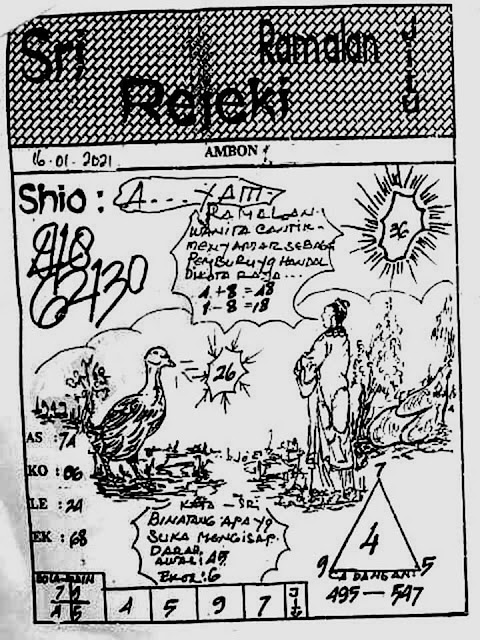 Sri
Rejeki
Ramalan
JITU
AMBON
16-01-2021
Shio : A....YAM
RAMALAN
WANITA CANTIK
MENYAMAR SEBAGA
PEMBURU YG HANDAL
DIKOTA RAYA...
1 + 8 = 18
1 - 8 = 18
36
62130
26
AS : 71
KO : 06
LE : 24
EK : 68
KATA - SRI
BINATANG APA YG
SUKA MENGISAP
DARAH
AWAL : A5
EKOR : 6
7
4
9
5
CADANGAN :
495 — 547
4 5 9 7 JITU